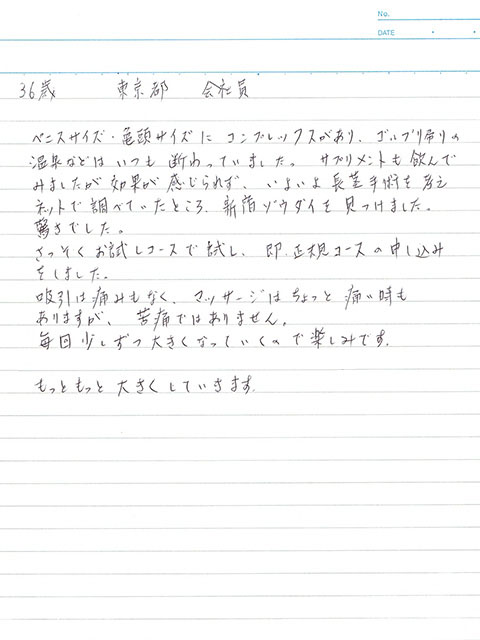 No.
DATE
36歳 東京都 会社員
ペニスサイズ・亀頭サイズにコンプレックスがあり、ゴルフ帰りの
温泉などはいつも断わっていました。サプリメントも飲んで
みましたが効果が感じられず、いよいよ長茎手術を考え
ネットで調べていたところ、新宿ゾウダイを見つけました。
驚きでした。
さっそくお試しコースで試し、即、正規コースの申し込み
をしました。
吸引は痛みもなく、マッサージはちょっと痛い時も
ありますが、苦痛ではありません。
毎回少しずつ大きくなっていくので楽しみです。
もっともっと大きくしていきます。